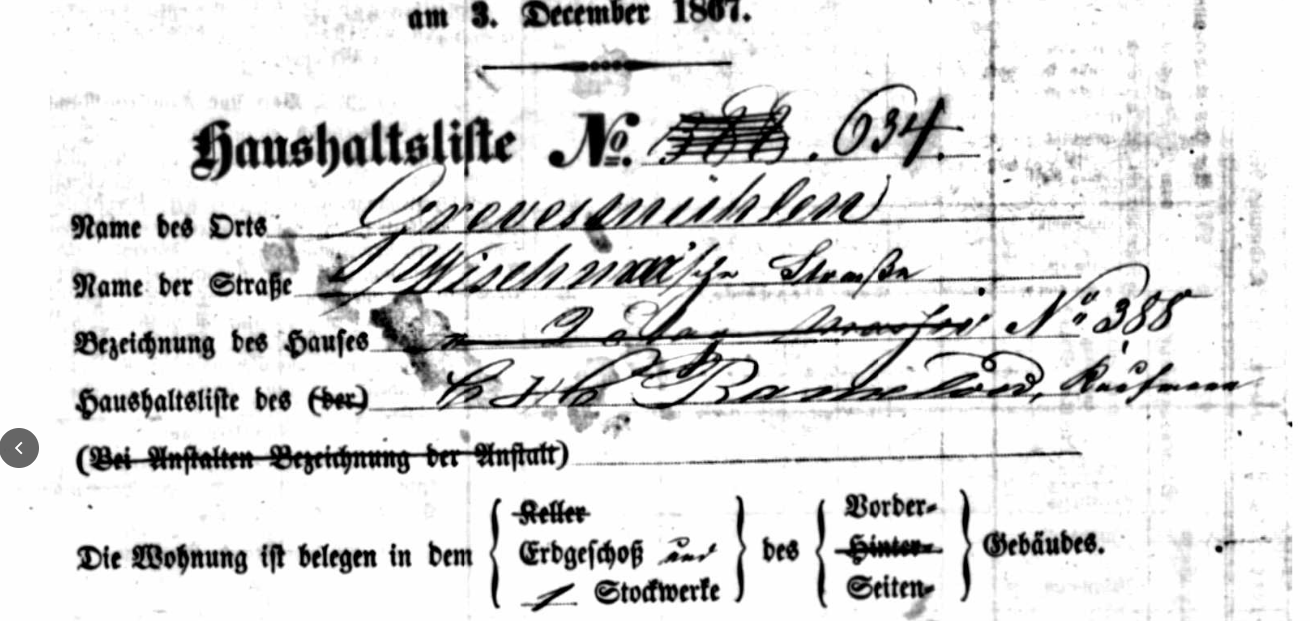 am 3. December 1867.
Haushaltsliste No. 388. 634.
Name des Orts Grevesmühlen
Name der Straße Wischmar'sche Straße
Bezeichnung des Hauses No 388
Haushaltsliste des (der) Kaufmann
(Bei Anstalten Bezeichnung der Anstalt)
Die Wohnung ist belegen in dem { Keller Erdgeschoß und 1 Stockwerke } des { Vorder- Hinter- Seiten- } Gebäudes.